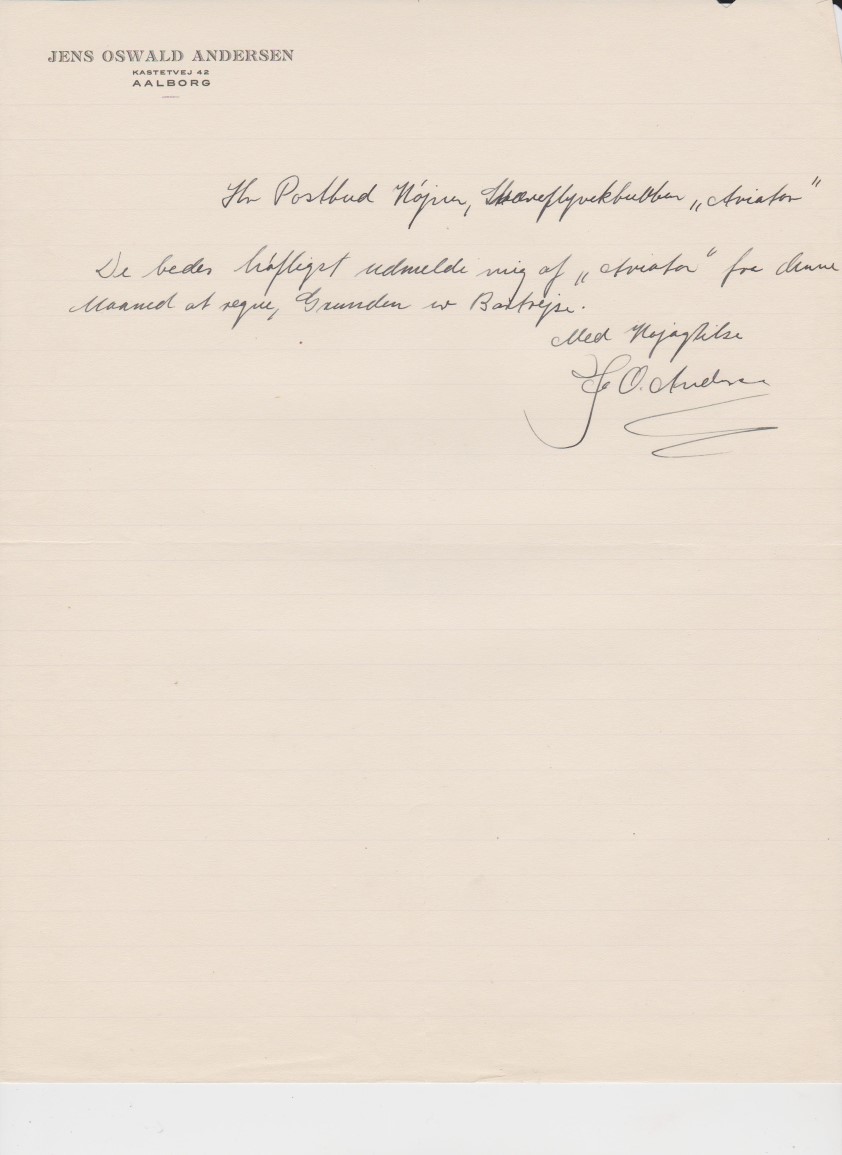 JENS OSWALD ANDERSEN
KASTETVEJ 42
AALBORG
Hr Postbud Højner, Svæveflyveklubben „Aviator"
De bedes høfligst udmelde mig af „Aviator" fra denne
Maaned at regne, Grunden er Bortrejse.
Med Højagtelse
O. Andersen